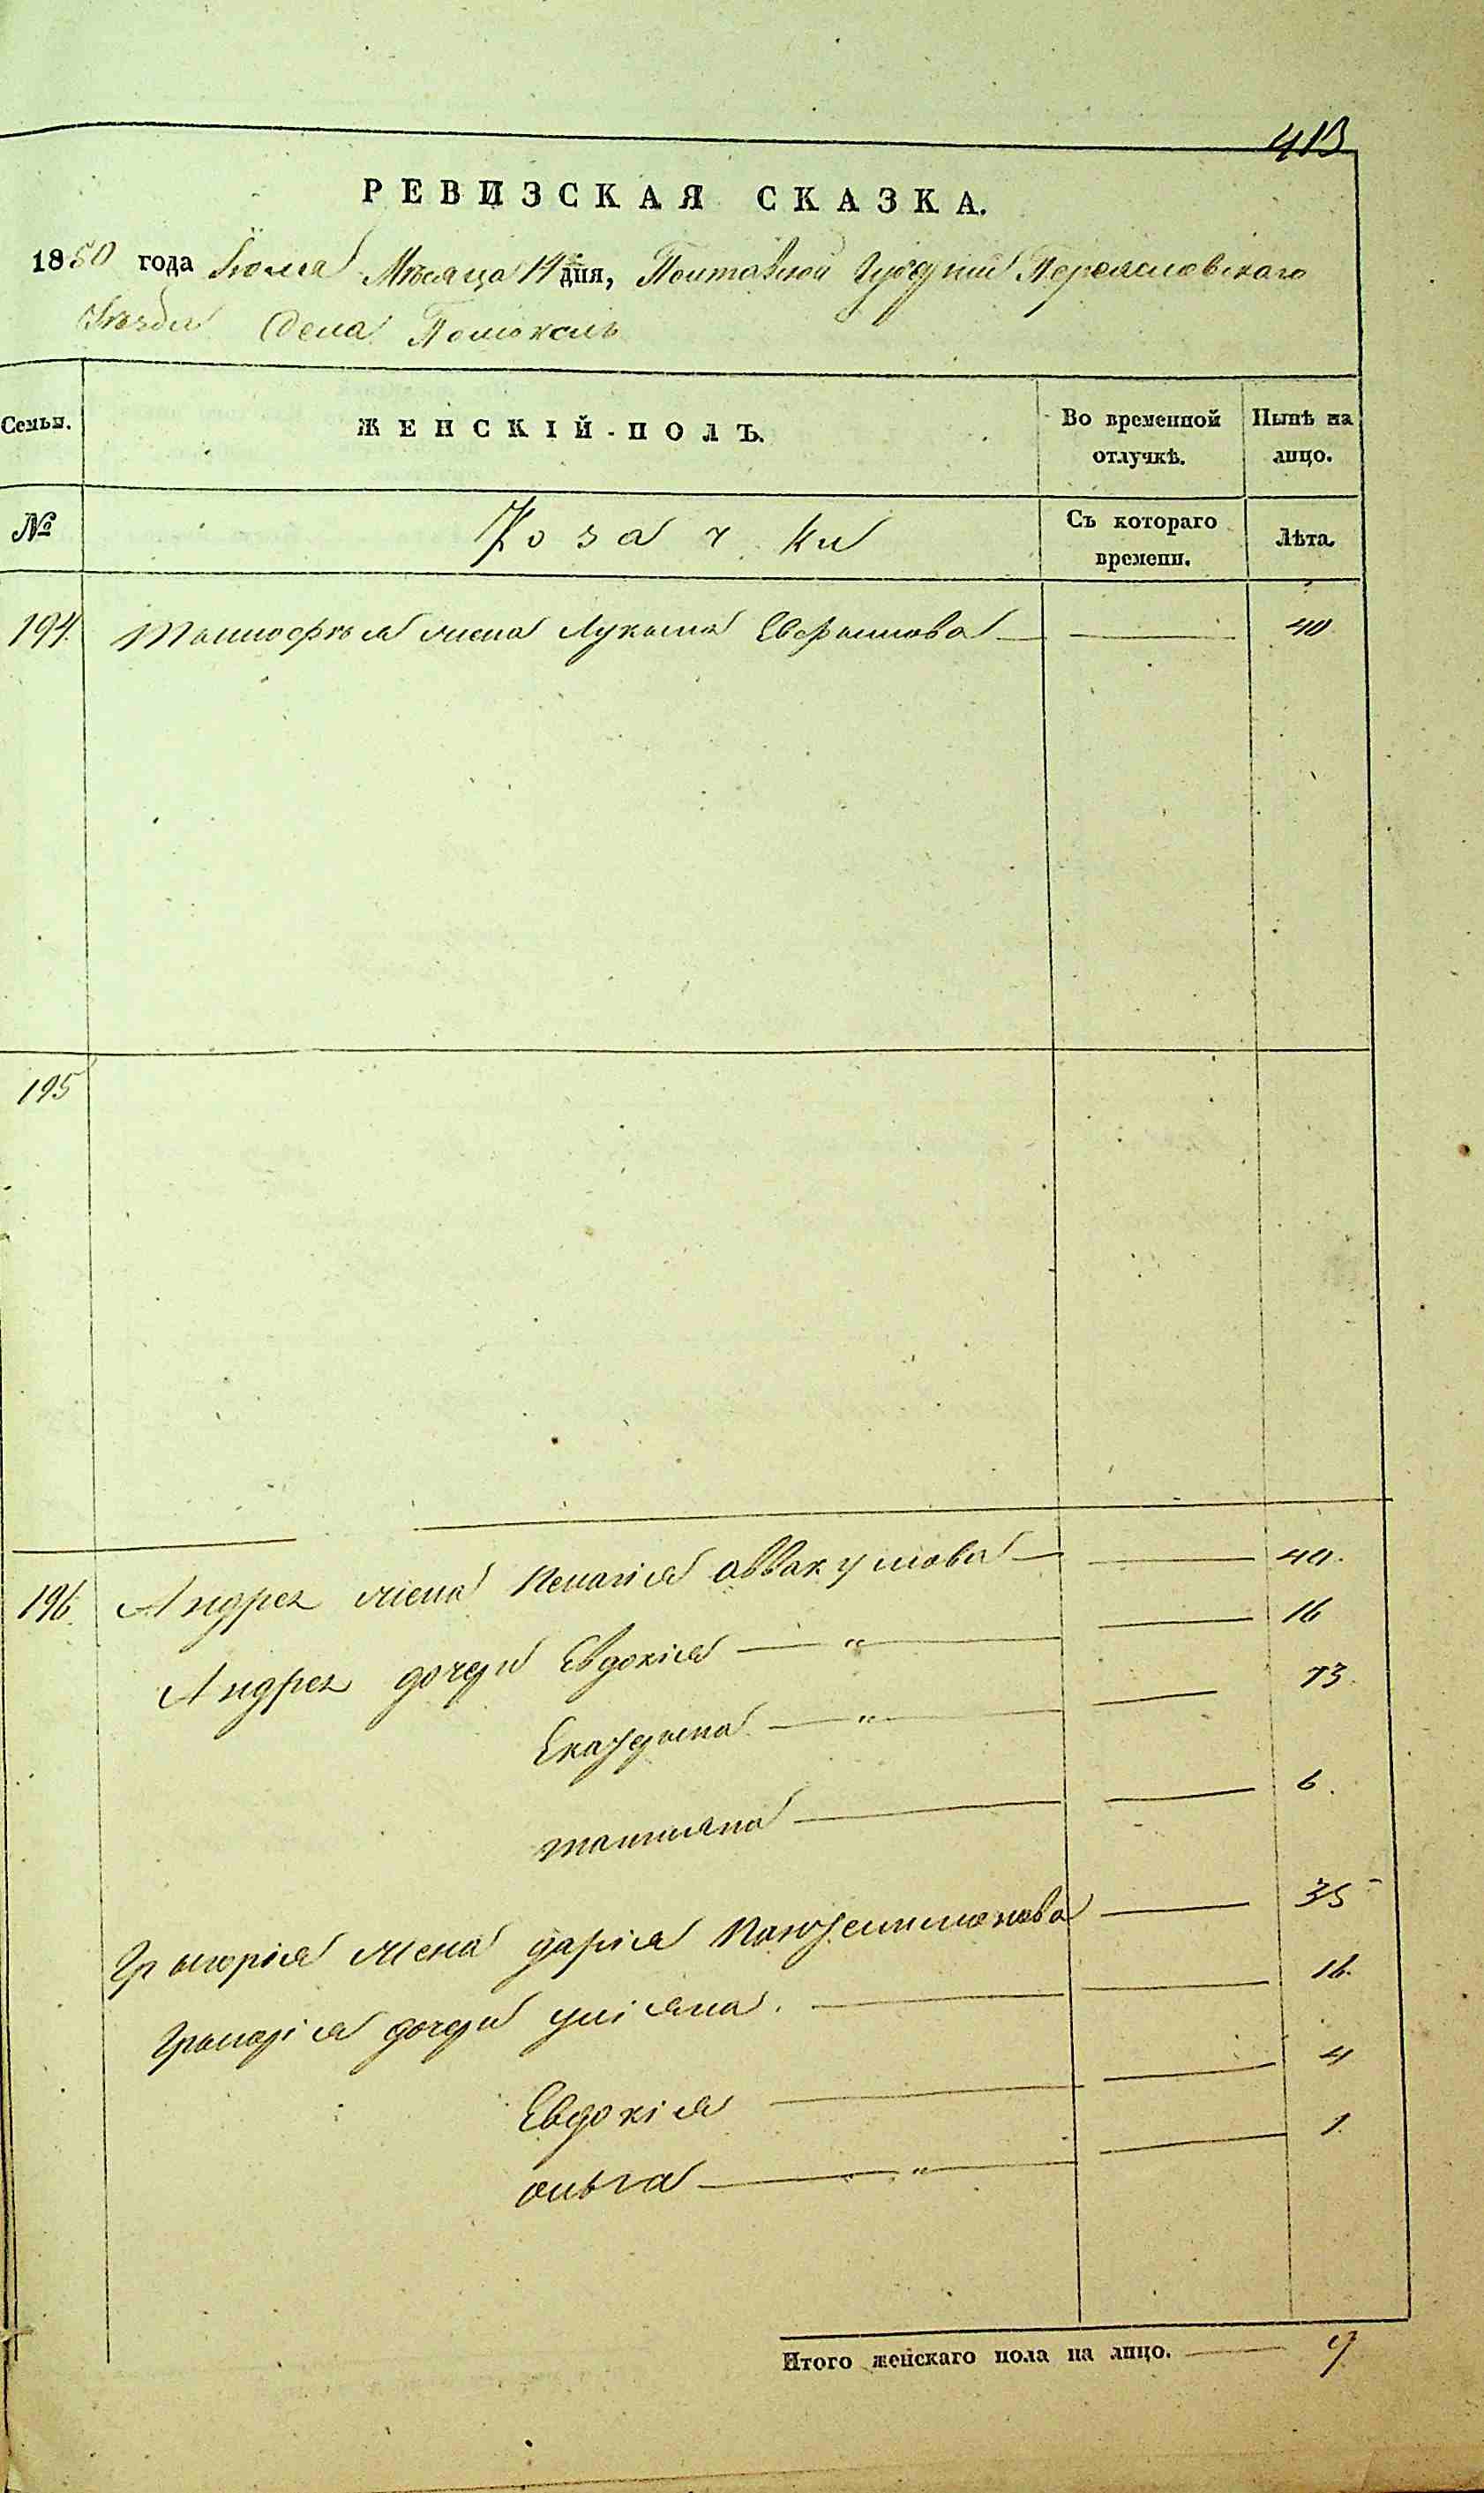 413
РЕВИЗСКАЯ СКАЗКА.
1850 года Іюля Мѣсяца 14 дня, Полтавской Губерніи Переяславскаго
Уѣзда Села Помоклъ
Семьи. ЖЕНСКІЙ ПОЛЪ. Во временной отлучкѣ. Нынѣ на лицо.
№ Козачки Съ котораго времени. Лѣта.
194. Тимофѣя жена Лукія Ефимова 40
195
196. Андрея жена Пелагія Аввакумова 40.
Андрея дочери Евдокія " 16
Екатерина " 13.
Татіяна 6.
Григорія жена Дарія Пантелимонова 35
Григорія дочери Уліяна. 16.
Евдокія 4
Ольга " 1.
Итого женскаго пола на лицо. 9